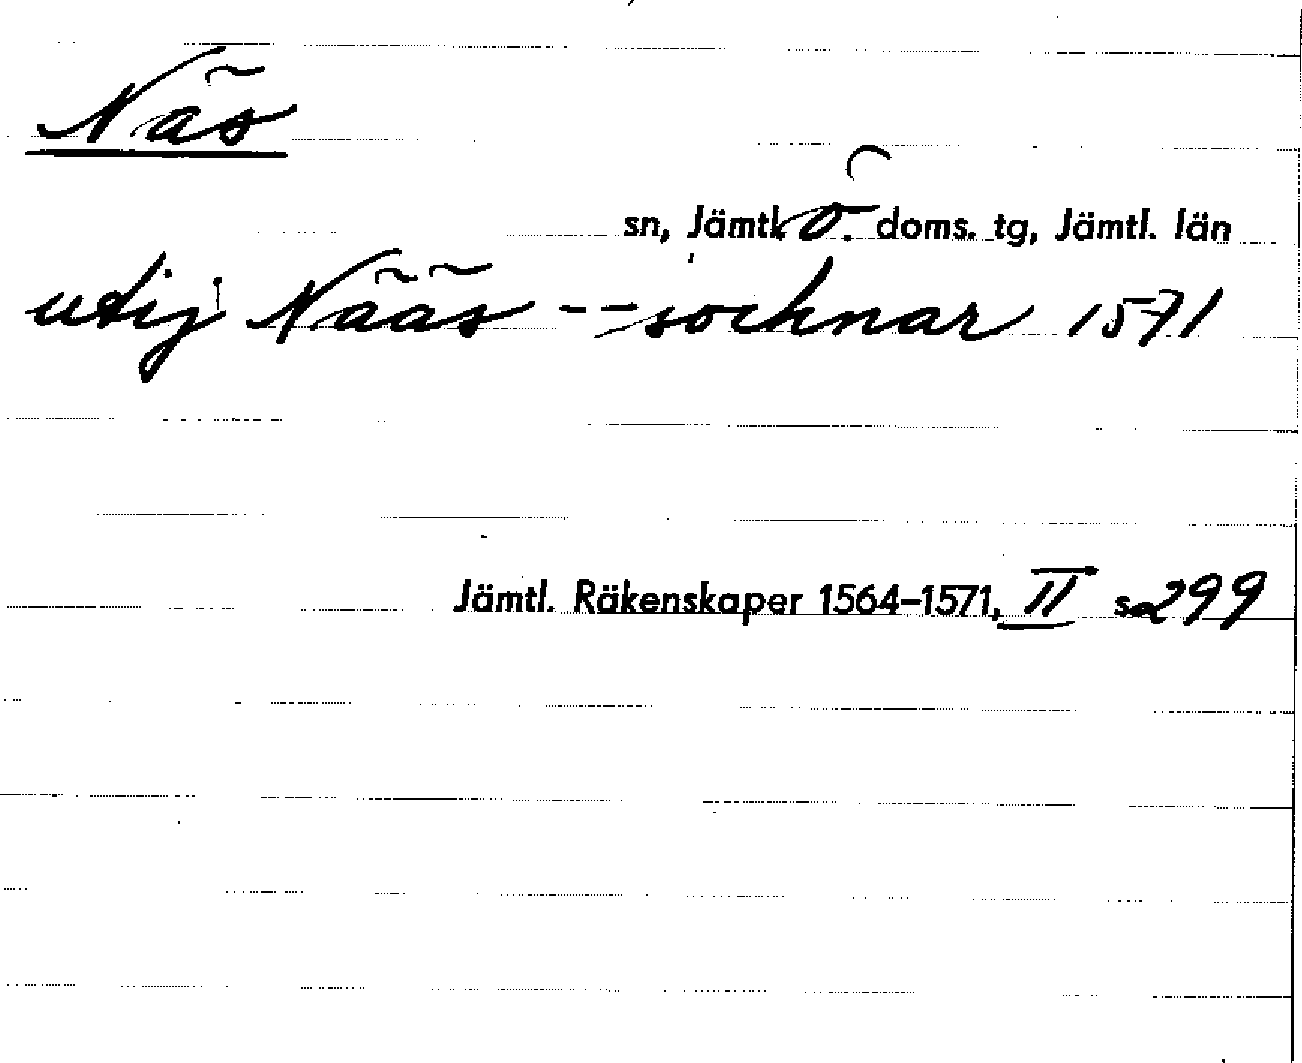 Näs
sn, Jämtl. ö. doms. tg, Jämtl. län
utij Nääs -- sochnar 1571
Jämtl. Räkenskaper 1564-1571, II s. 299